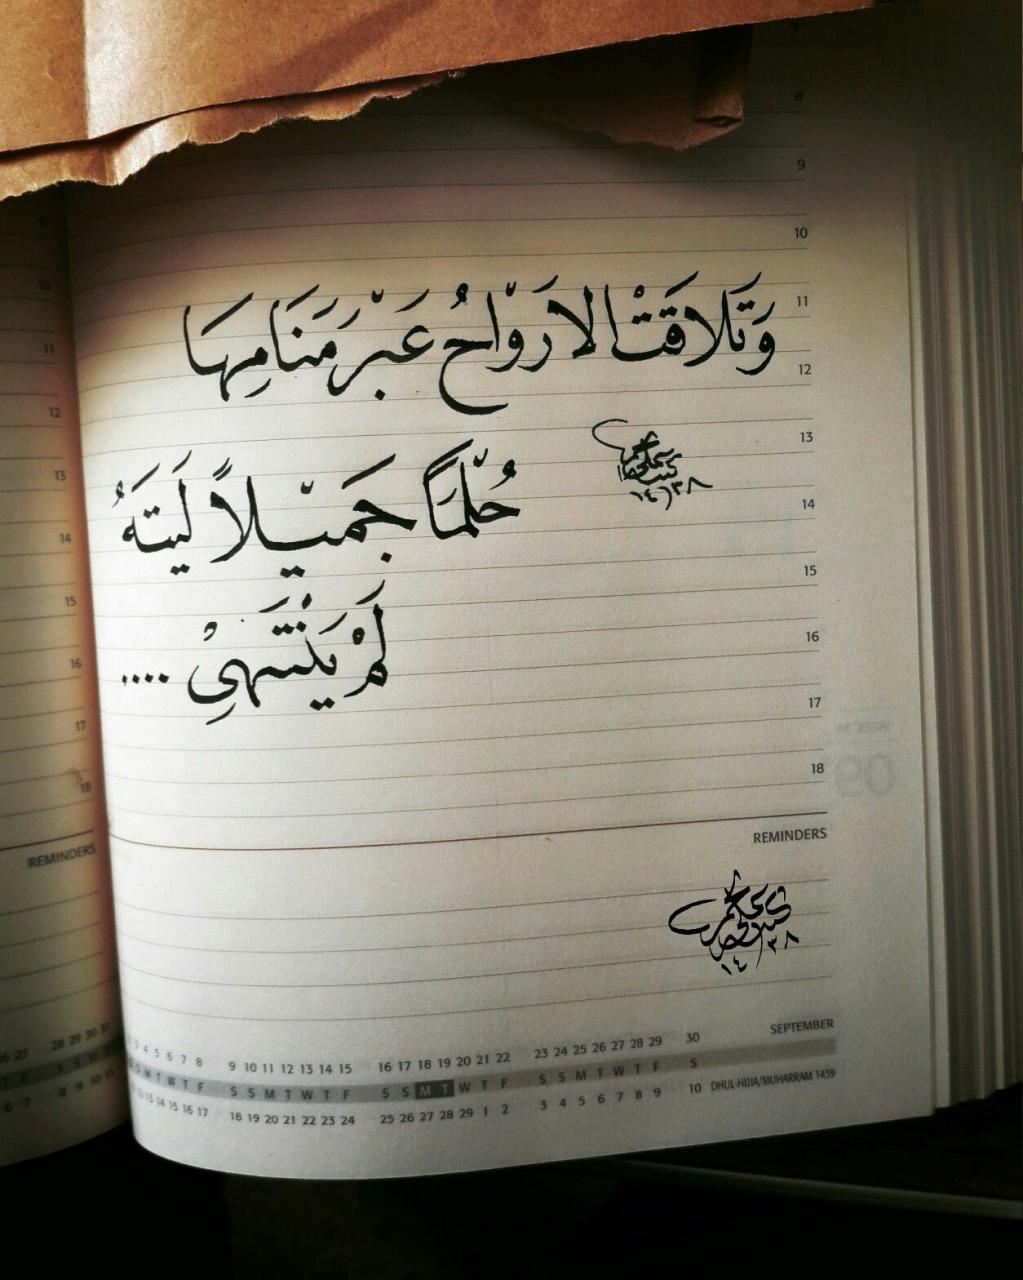 8
9
10
11
12
13
14
15
16
17
18
وَتَلَاقَتْ الارَوْاحُ عَبْرَ مَنَامِهَا
حُلْمَاً جَمَيْلاً لَيتَهُ
لَمْ يَنْتَهِيْ ....
١٤٣٨
REMINDERS
١٤٣٨
SEPTEMBER
3 4 5 6 7 8 9 10 11 12 13 14 15 16 17 18 19 20 21 22 23 24 25 26 27 28 29 30
S M T W T F S S M T W T F S S M T W T F S S M T W T F S
12 13 14 15 16 17 18 19 20 21 22 23 24 25 26 27 28 29 1 2 3 4 5 6 7 8 9 10 DHUL-HIJJA/MUHARRAM 1439
10
11
12
13
14
15
16
17
18
REMINDERS